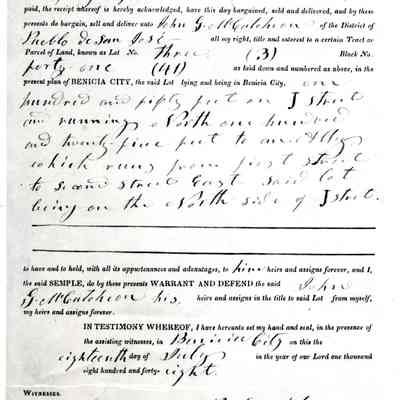 paid, the receipt whereof is hereby acknowledged, have this day bargained, sold and delivered, and by these
presents do bargain, sell and deliver unto John G. McCutcheon of the District of
Pueblo de San José all my right, title and interest to a certain Tract or
Parcel of Land, known as Lot No. three (3) Block No.
forty one (41) as laid down and numbered as above, in the
present plan of BENICIA CITY, the said Lot lying and being in Benicia City, one
hundred and fifty feet on J street
and running North one hundred
and twenty five feet to an Ally
which runs from first street
to second street East said lot
being on the North side of J street.
to have and to hold, with all its appurtenances and advantages, to him heirs and assigns forever, and I,
the said SEMPLE, do by these presents WARRANT AND DEFEND the said John
G. McCutcheon his heirs and assigns in the title to said Lot from myself,
my heirs and assigns forever.
IN TESTIMONY WHEREOF, I have hereunto set my hand and seal, in the presence of
the assisting witnesses, in Benicia City on this the
eighteenth day of July in the year of our Lord one thousand
eight hundred and forty-eight.
WITNESSES.